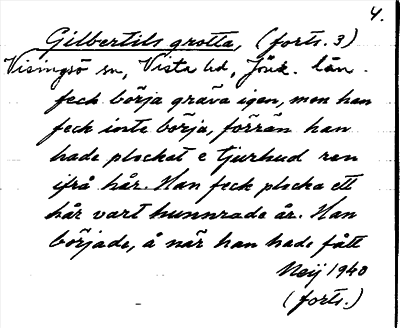 4.
Gilbertils grotta, (forts. 3)
Visingsö sn, Vista hd, Jönk. län.
feck börja gräva igen, men han
feck inte börja, förrän han
hade plockat e tjurhud ren
ifrå hår. Han feck plocka ett
hår vart hunnrade år. Han
började, å när han hade fått
Neij 1940
(forts.)